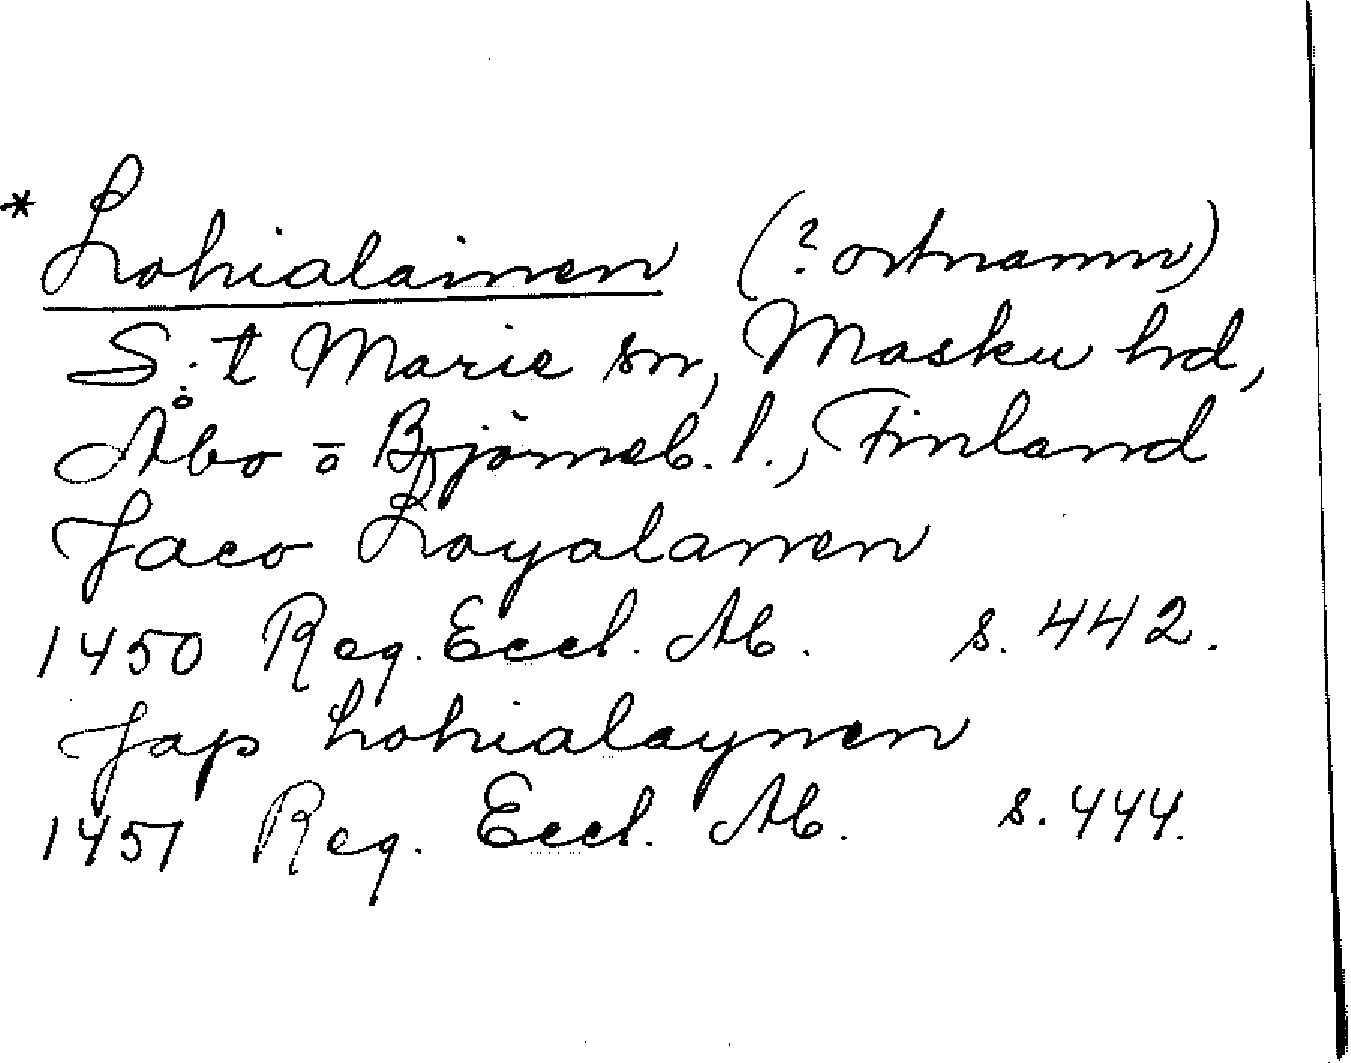 * Lohialainen (? ortnamn)
S:t Marie sn, Masku hd,
Åbo o Björneb. l., Finland
Jaco Loyalanen
1450 Reg. Eccl. Ab. s. 442.
Jap Lohialaynen
1451 Reg. Eccl. Ab. s. 444.